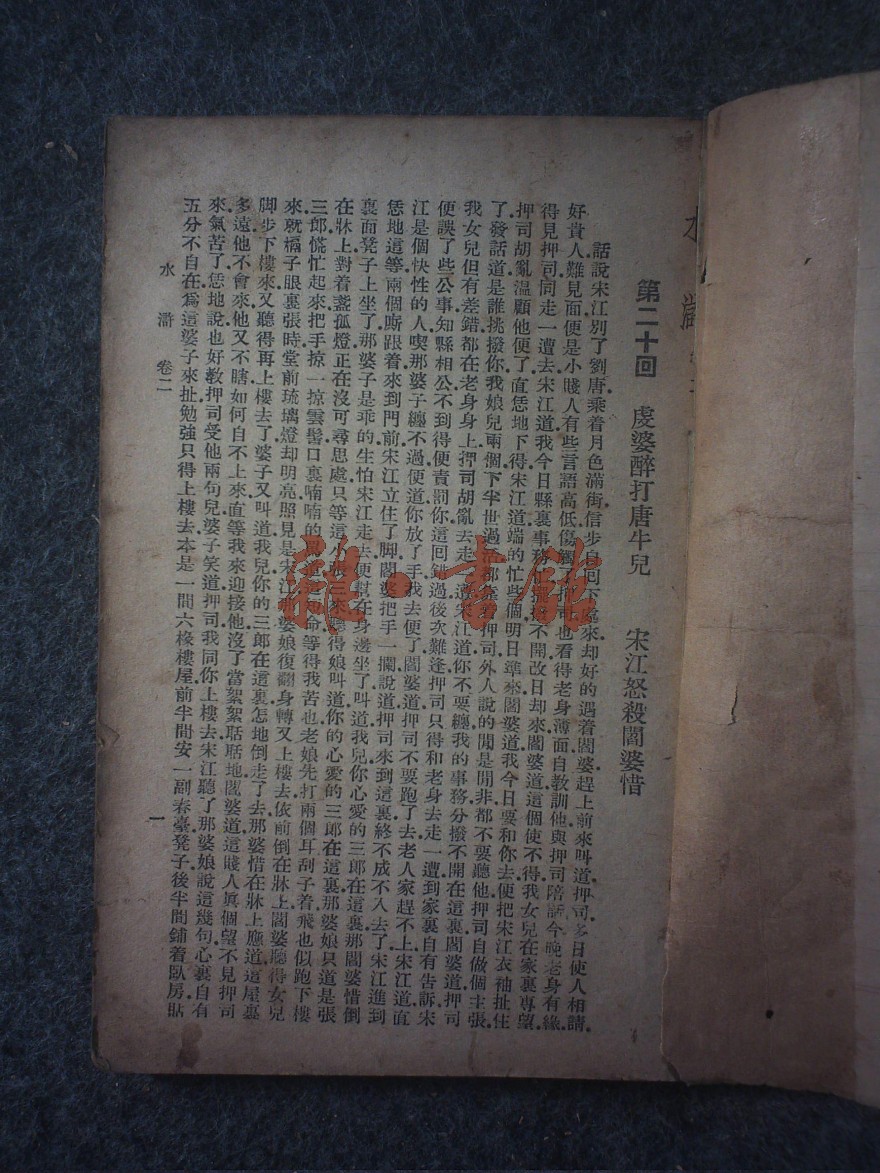 水滸
第二十回 虔婆醉打唐牛兒 宋江怒殺閻婆惜
話說宋江別了劉唐.乘着月色滿街.信步自回下處來.却好的遇着閻婆.趕上前來叫道.押司.多日使人相請.
好貴人.難見面.便是小賤人有些言語高低.傷觸了押司.也看得老身薄面.自教訓他與押司陪話.今晚老身有緣.
得見押司.同走一遭去.宋江道.我今日縣裏事務忙.擺撥不開.改日却來.閻婆道.這個使不得.我女兒在家裏專望.
押司胡亂溫顧他便了.直恁地下得.宋江道.端的忙些個.明日準來.閻婆道.我今日要和你去.便把宋江衣袖扯住
了.發話道.是誰挑撥你.我娘兒兩個下半世過活都靠着押司.外人說的閒是閒非.都不要聽他.押司自做個主張.
我女兒但有差錯.都在老身身上.押司胡亂去走一遭.宋江道.你不要纏.我的事務分撥不開在這裏.閻婆道.押司
便誤了些公事.知縣相公不到得便責罰你.這回錯過.後次難逢.押司只得和老身去走一遭.到家裏自有告訴.宋
江是個快性的人.喫那婆子纏不過.便道.你放了手.我去便了.閻婆道.押司不要跑了去.老人家趕不上.宋江道.直
恁地這等.兩個廝跟着來到門前.宋江立住了脚.閻婆把手一攔.說道.押司來到這裏.終不成不入去了.宋江進到
裏面凳子上坐了.那婆子是乖的.生怕宋江走去.便幫在身邊坐了.叫道.我兒.你心愛的三郎在這裏.那閻婆惜倒
在牀上.對着盞孤燈.正在沒可尋思處.只等這小張三來.聽得娘叫道.你的心愛的三郎在這裏.那婆娘只道是張
三郎.慌忙起來.把手掠一掠雲髻.口裏喃喃的罵道.這短命.等得我苦也.老娘先打兩個耳刮子着.飛也似跑下樓
來.就槅子眼裏張時.堂前琉璃燈却明亮.照見是宋江.那婆娘復翻身轉又上樓去.依前倒在牀上.閻婆聽得女兒
脚步下樓來.又聽得再上樓去了.婆子又叫道.我兒.你的三郎在這裏.怎地倒走了去.那婆惜在牀上應道.這屋裏
多遠.他不會來.他又不瞎.如何自不上來.直等我來迎接他.沒了當絮絮聒聒地.閻婆道.這賤人眞個望不見押司
來.氣苦了.恁地說.也好教押司受他兩句兒.婆子笑道.押司.我同你上樓去.宋江聽了那婆娘說這幾句.心裏自有
五分不自在.爲這婆子來扯.勉強只得上樓去.本是一間六椽樓屋.前半間安一副春臺凳子.後半間鋪着臥房.貼
水滸 卷二 一
雜·書館